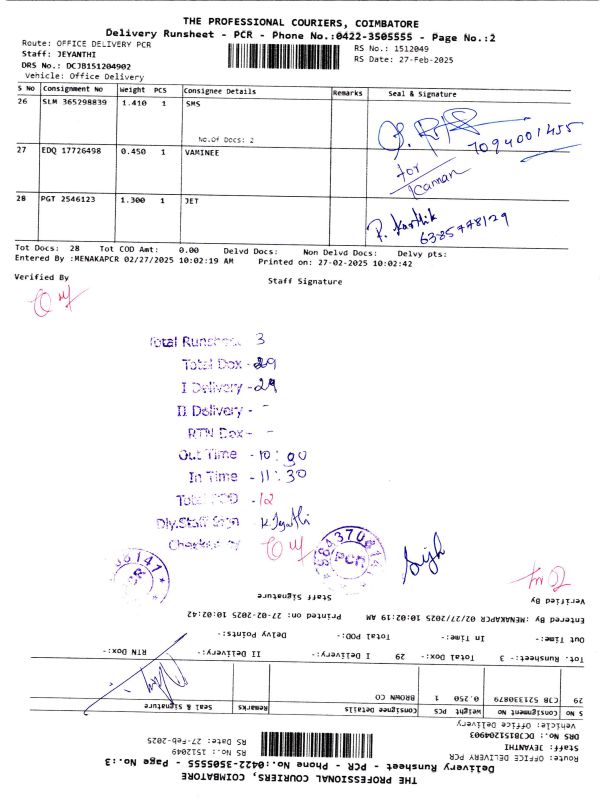 THE PROFESSIONAL COURIERS, COIMBATORE
Delivery Runsheet - PCR - Phone No.:0422-3505555 - Page No.:2
Route: OFFICE DELIVERY PCR
RS No.: 1512049
Staff: JEYANTHI
RS Date: 27-Feb-2025
DRS No.: DCJB151204902
Vehicle: Office Delivery
S No Consignment No Weight PCS Consignee Details Remarks Seal & Signature
26 SLM 365298839 1.410 1 SMS
No.Of Docs: 2
7094001455
for
Raman
27 EDQ 17726498 0.450 1 VAMINEE
28 PGT 2546123 1.300 1 JET
P. Karthik
6385778129
Tot Docs: 28 Tot COD Amt: 0.00 Delvd Docs: Non Delvd Docs: Delvy pts:
Entered By :MENAKAPCR 02/27/2025 10:02:19 AM Printed on: 27-02-2025 10:02:42
Verified By Staff Signature
Total Runsheet 3
Total Dox - 29
I Delivery - 29
II Delivery - -
RTN Dox - -
Out Time - 10:00
In Time - 11:30
Total POD - 12
Dly.Staff Sign K Jyathi
Checked by
PCR
THE PROFESSIONAL COURIERS, COIMBATORE
Delivery Runsheet - PCR - Phone No.:0422-3505555 - Page No.:3
Route: OFFICE DELIVERY PCR
RS No.: 1512049
Staff: JEYANTHI
RS Date: 27-Feb-2025
DRS No.: DCJB151204903
Vehicle: Office Delivery
S No Consignment No Weight PCS Consignee Details Remarks Seal & Signature
29 CJB 521330879 0.250 1 BROWN CO
Tot. Runsheet:- 3 Total Dox:- 29 I Delivery:- II Delivery:- RTN Dox:-
Out Time:- In Time:- Total POD:- Delvy Points:-
Entered By :MENAKAPCR 02/27/2025 10:02:19 AM Printed on: 27-02-2025 10:02:42
Verified By Staff Signature